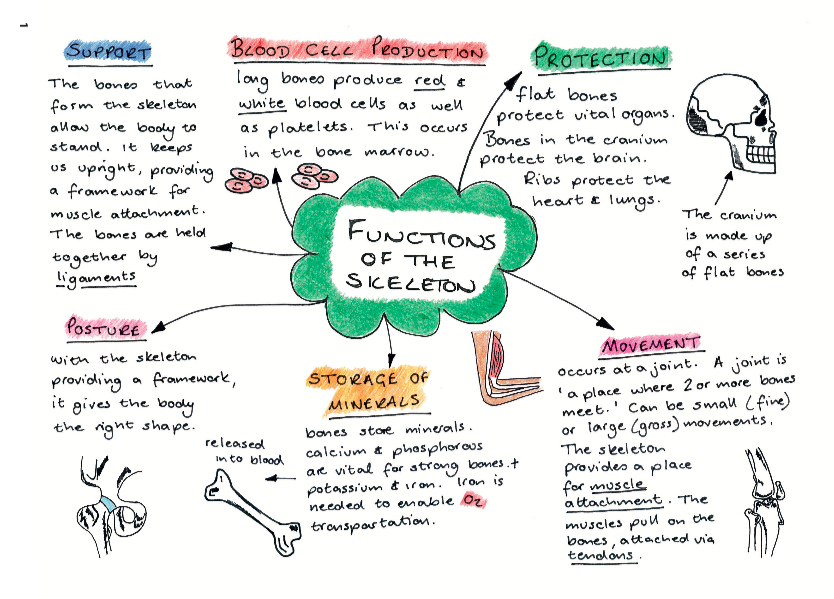 1
SUPPORT
The bones that
form the skeleton
allow the body to
stand. it keeps
us upright, providing
a framework for
muscle attachment.
The bones are held
together by
ligaments
BLOOD CELL PRODUCTION
long bones produce red &
white blood cells as well
as platelets. This occurs
in the bone marrow.
PROTECTION
flat bones
protect vital organs.
Bones in the cranium
protect the brain.
Ribs protect the
heart & lungs.
The cranium
is made up
of a series
of flat bones
FUNCTIONS
OF THE
SKELETON
POSTURE
with the skeleton
providing a framework,
it gives the body
the right shape.
STORAGE OF
MINERALS
bones store minerals.
calcium & phosphorous
are vital for strong bones. +
potassium & iron. Iron is
needed to enable O2
transportation.
released
into blood
MOVEMENT
occurs at a joint. A joint is
'a place where 2 or more bones
meet.' Can be small (fine)
or large (gross) movements.
The skeleton
provides a place
for muscle
attachment. The
muscles pull on the
bones, attached via
tendons.